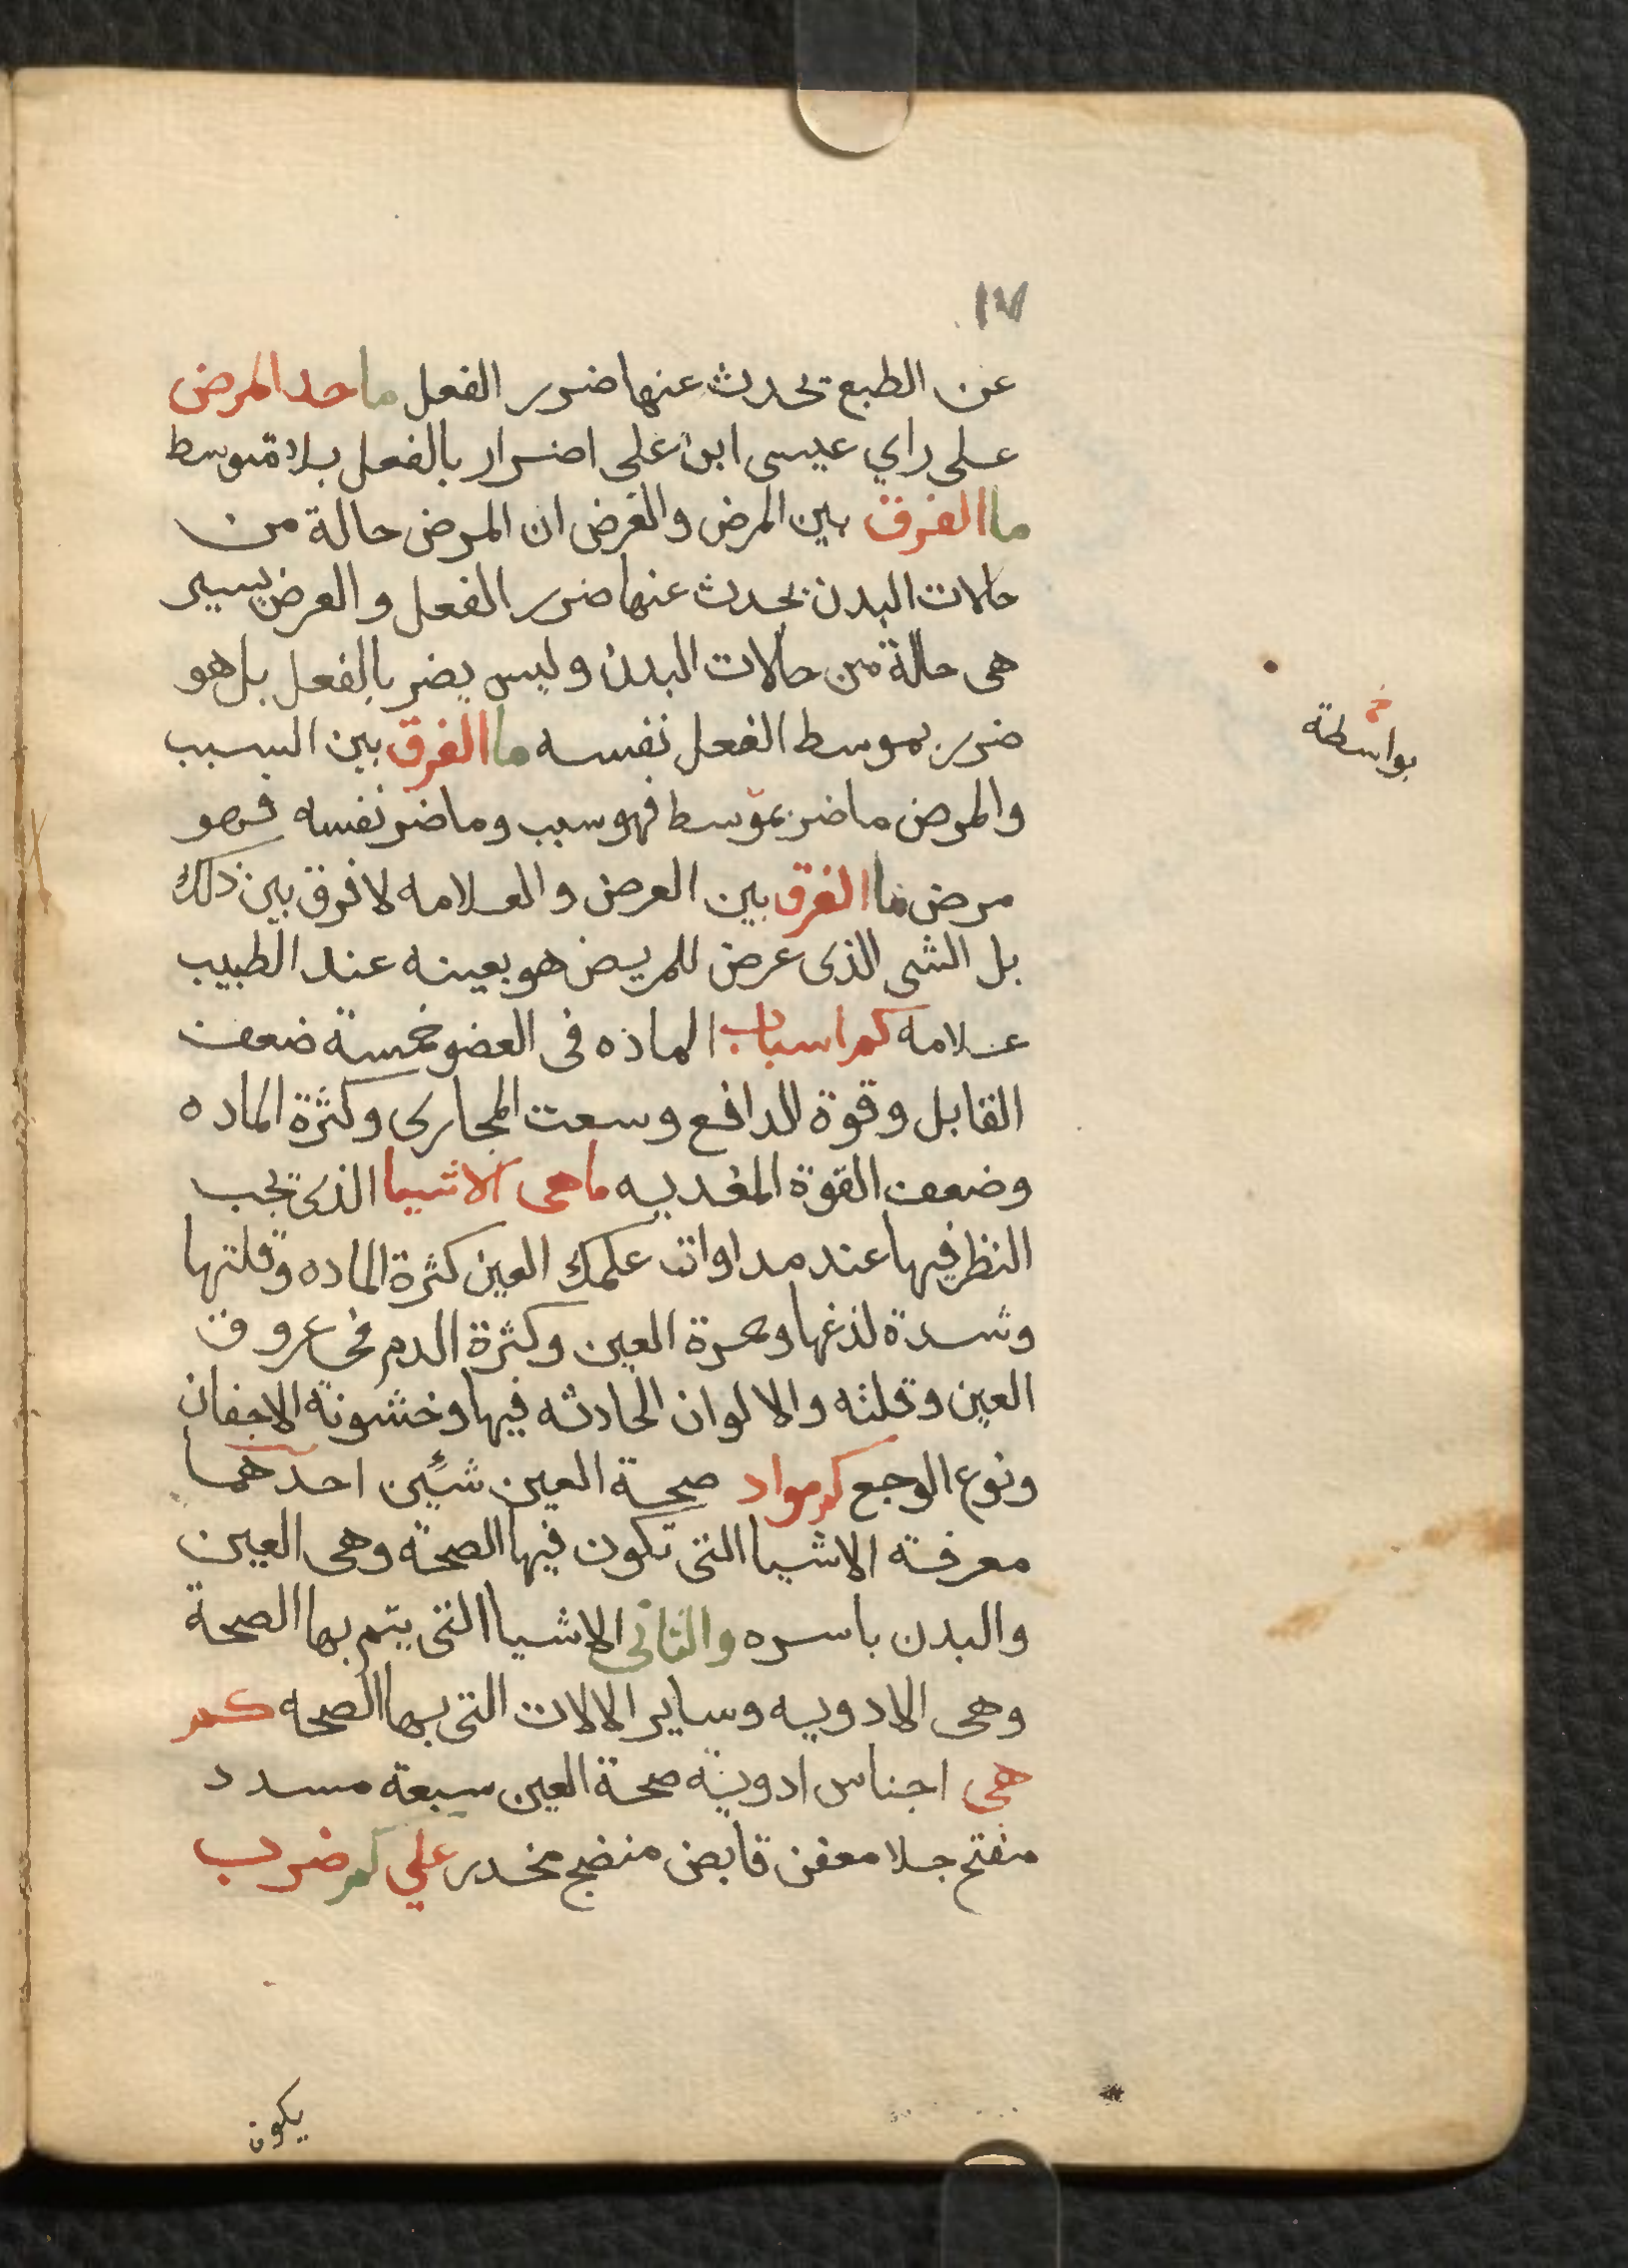 ١٧
عن الطبع تحدث عنها ضرر الفعل ما حد المرض
على راي عيسى ابن على اضرار بالفعل بلا متوسط
ما الفرق بين المرض والغرض ان المرض حالة من
حالات البدن يحدث عنها ضرر الفعل والعرض يسير
هى حالة من حالات البدن وليس يضر بالفعل بل هو
ضرر بموسط الفعل نفسه ما الفرق بين السبب
والمرض ما ضر بموسط فهو سبب وما ضر نفسه فهو
بواسطة
مرض ما الفرق بين العرض والعلامه لا فرق بين ذلك
بل الشى الذى عرض للمريض هو بعينه عند الطبيب
علامه كم اسباب الماده فى العضو خمسة ضعف
القابل وقوة الدافع وسعت المجارى وكثرة الماده
وضعف القوة المغديه ما هى الاشيا الذى يجب
النظر فيها عند مداوات علمك العين كثرة الماده وقلتها
وشدة لذغها وحمرة العين وكثرة الدم فى عروق
العين وقلته والالوان الحادثه فيها وخشونة الاجفان
ونوع الوجع كم مواد صحة العين شيئين احدهما
معرفة الاشيا التى تكون فيها الصحة وهى العين
والبدن باسره والثانى الاشيا التى يتم بها الصحة
وهى الادويه وساير الالات التى بها الصحه كم
هى اجناس ادوية صحة العين سبعة مسدد
مفتح جلا معفن قابض منضج مخدر على كم ضرب
يكون